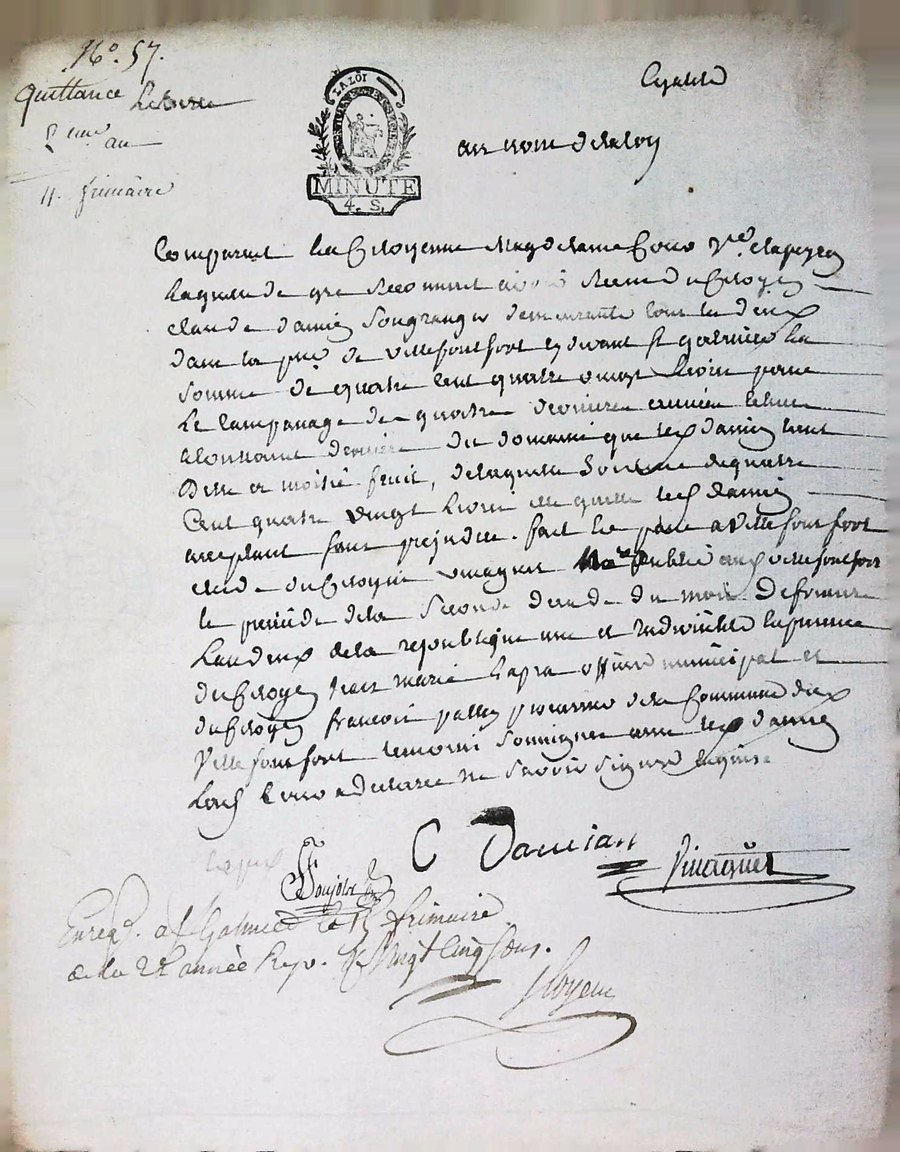 N.° 57.
Quittance
2.eme an
11. frimaire
LA LOI
MINUTE
4. S.
Egalité
au nom de la loy
Comparut la Citoyenne Magdelaine v.e
laquelle de gré reconnut avoir receu du Citoyen
claude damien demeurants tous les deux
dans la de villefontfort cy devant st galmier la
somme de quatre cent quatre vingt livres pour
le de quatre dernieres années
derniere du domaine que led damien tient
a moitié fruit, de laquelle somme de quatre
Cent quatre vingt livres elle quitte led damien
acceptant sans prejudice. fait et passé a villefontfort
etude du Citoyen vinagner No.re Public aud villefontfort
le de la seconde decade du mois de frimaire
l'an deux de la republique une et indivisible en presence
du Citoyen Jean marie lapra officier municipal et
du Citoyen francois procureur de la Commune dud
villefontfort temoins soussignes avec led damien
lad a declaré ne savoir signer enquise
C Damian
Enregé. a St Galmier le frimaire
de la 2e année Rep. R vingt cinq sous.